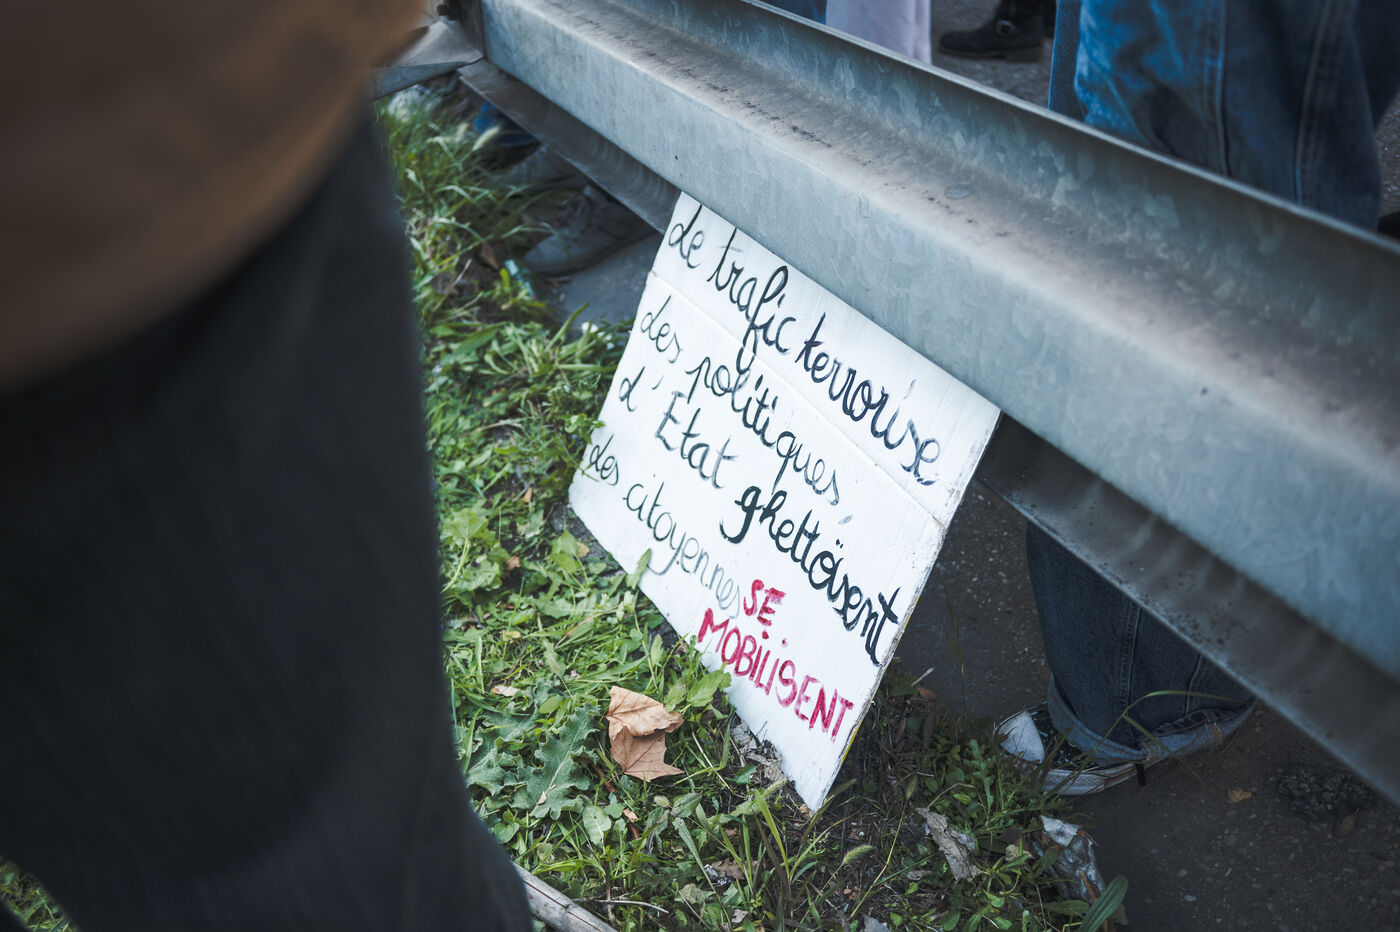 Le trafic terrorise
des politiques
d'Etat ghettoïsent
des citoyennes
SE
MOBILISENT